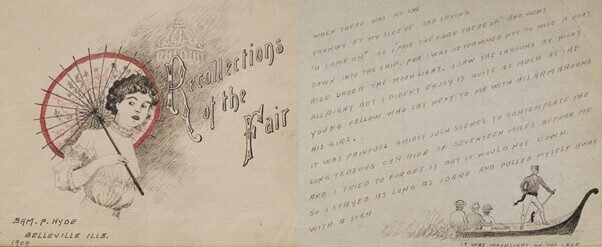 Recollections
of the
Fair
SAM. P. HYDE
BELLEVILLE ILLS.
1909
WHEN THERE WAS NO ONE
YANKING AT MY SLEEVE AND SAYING
"O COME ON" SO I "PAID THE FARE THEREOF" AND WENT
DOWN INTO THE SHIP. FOR I WAS DETERMINED NOT TO MISS A BOAT
RIDE UNDER THE MOONLIGHT. I SAW THE LAGOONS BY NIGHT
ALLRIGHT BUT I DIDENT ENJOY IT QUITE AS MUCH AS THE
YOUNG FELLOW WHO SAT NEXT TO ME WITH HIS ARM AROUND
HIS GIRL.
IT WAS PAINFULL AMIDST SUCH SCENES TO CONTEMPLATE THE
LONG TEDEOUS CAR RIDE OF SEVENTEEN MILES BEFORE ME
AND I TRIED TO FORGET IT BUT IT WOULD NOT DOWN.
SO I STAYED AS LONG AS I DARE AND PULLED MYSELF AWAY
WITH A SIGH
IT WAS MOONLIGHT ON THE LAKE